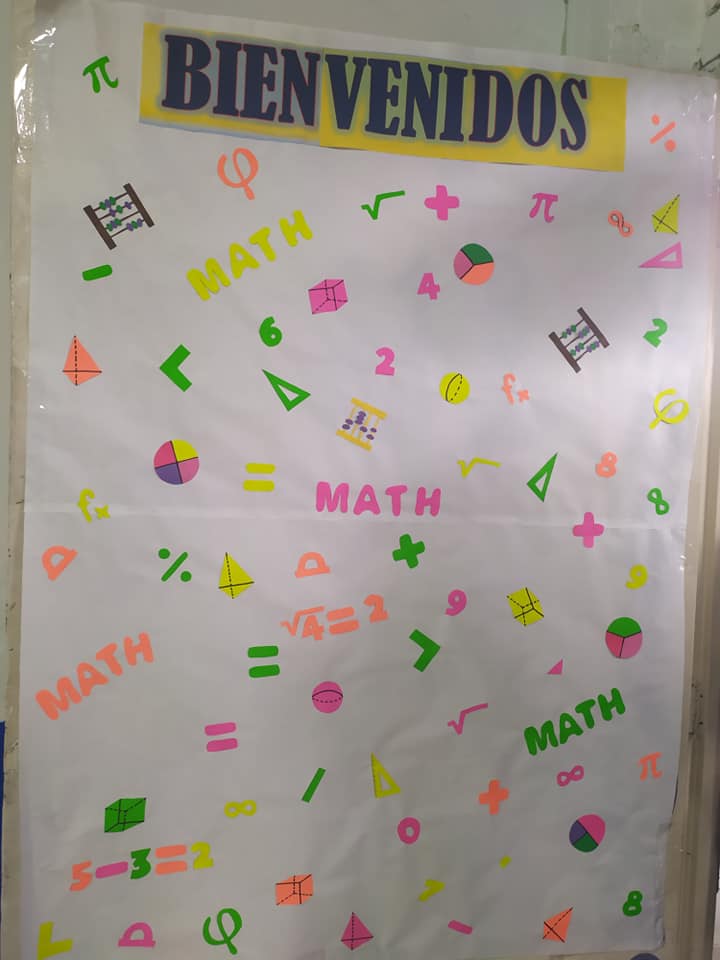 BIENVENIDOS
π
%
φ
√ + π ∞
MATH
-
4
6
2
2
<
fx
φ
=
√
8
MATH
8
fx
+
%
+
9
√4=2
9
MATH
=
>
=
√
MATH
π
∞
/
∞
+
0
5-3=2
7
8
φ
-
<